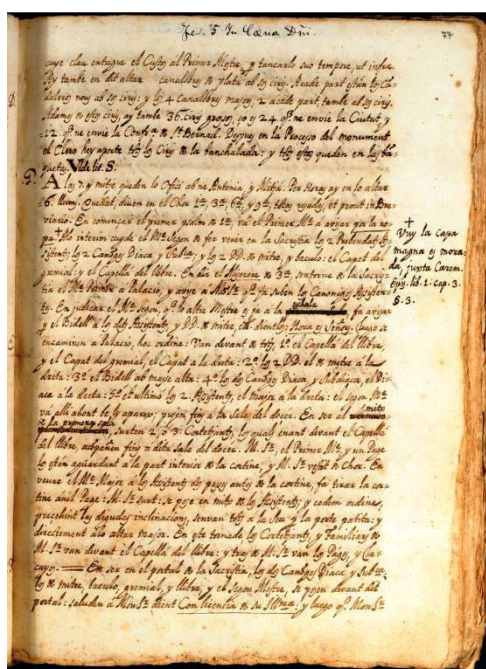 Fer. 5 In Cœna Dñi.
37
cuye clau entregue el Custos al Primer Mestre, y tancarlo suo tempore, ut infra.
Hy tambe en dit altar canalobres de plata ab sos ciris. Deade part estan los Can-
y los 4 Canalobres mayors, 2 acade part, tambe ab sos ciris.
Adames de estos ciris, ay tambe 36. ciris grossos, ço es 24 qe. ne envie la Ciutat, y
12. qe. ne envie la Confra. de St. Bernad.
el Clero hey aporte tots los Ciris de la
Vide lit. S.
A les 7. y mite queden lo Ofici ab ne Antonia, y Mitra.
6. llums. Duchat, diuen en el Chor 1ª, 3ª, 6ª, y 9ª, totes resades, et prout in Bre-
viario. En comensar el primer psalm de 1ª, va el Primer Me. a avisar per la
pa. + Ho interim cuyde el Me. Segon de fer venir en la Sacristia los 2 Prebendats As-
sistents, los 2 Canoges Diaca y Subca., y los 2 DD. de mitra, y baculo: el Capat del
gremial: y el Capella del llibre. En dir el de 3ª, sentorne de la Sacris-
tia el Me. Primer a Palacio, y avise a M. Sr. qe. ja suben los Canonges Assisten-
ts. En judicar el Me. segon, qe. lo altre Mestre es ja a la escala, fa avisar
y el Bidell a los dits Assistents, y DD. de mitra, &. dientlos: Hora es Señors. Luego se
encaminen a Palacio, hoc ordine: Van devant de tots, 1º. el Capella del llibre,
y el Capat del gremial, el Capat a la dreta: 2º. los 2 DD. el de mitra a la
dreta: 3º. el Bidell ab maça alta: 4º. los dits Canoges Diaca, y Subdiaca, el Di-
aca a la dreta: 5º. et ultimo los 2. Assistents, el major a la dreta: el segon Me.
va alli ahont be li apareix: pujen fins a la Sala del docer. En ser al mitg
de la primera sala, surten 2, o 3. Contefrants, los quals
del llibre, acopañen fins a dita Sala del docer. M. Sr., el Primer Me., y un Page
los estan aguardant a la part interior de la cortina, y M. Sr. vestit de Chor. En
veure el Me. Major a los Assistents dos passos antes de la cortina, fa tirar la cor-
tina an el Page: M. Sr. surt: Se pose en mitg de los Assistents, y eodem ordine,
precehint las degudas inclinacions, senvan tots a la Seu y la porta petita: y
directement a lo altar major. En este tornade los Contefrants, y Familiars de
M. Sr. van devant el Capella del llibre: y tras de M. Sr. van los Pages, y La-
cayos. — En ser en el portal de la Sacristia, los dits Canoges Diaca, y Subca.,
los de mitra, baculo, gremial, y llibra, y el Segon Mestre, se posen devant dit
portal: saluden a Mon Sr. dient Con licencia de su Illma.: y luego qe. Mon Sr.
+
Vuy la capa
magna es mora-
da, juxta Cærem.
Epis. lib. 1. cap. 3.
§. 3.